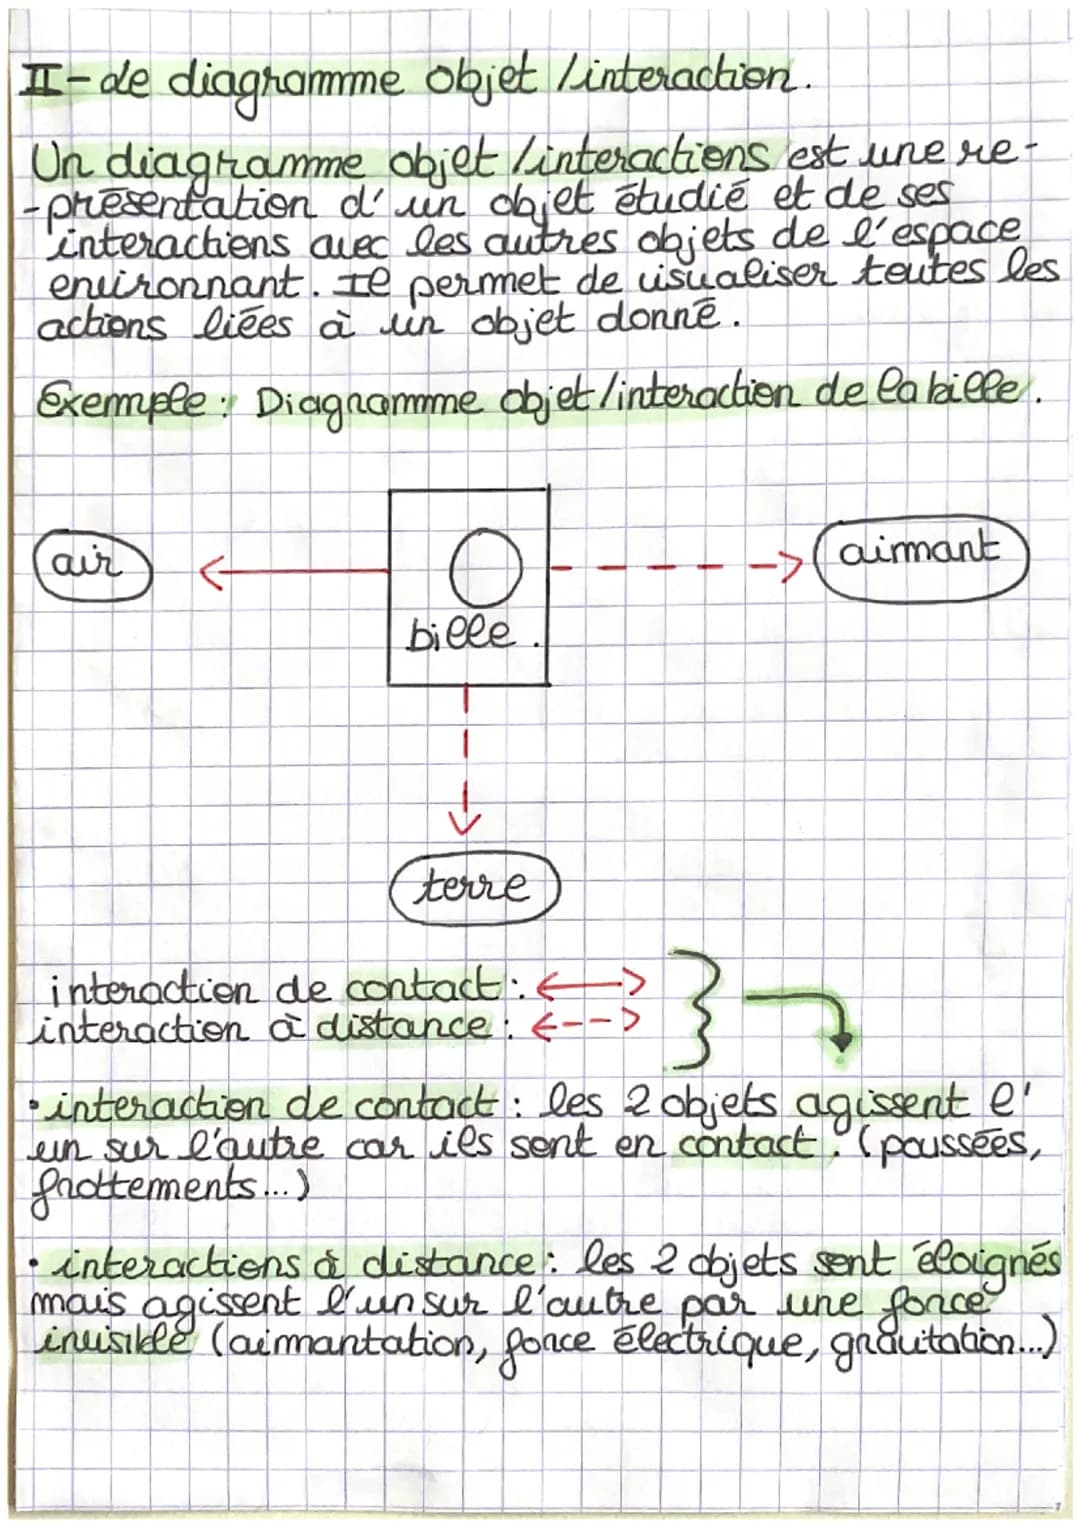 II- Le diagramme objet / interaction.
Un diagramme objet / interactions est une re-
-présentation d'un objet étudié et de ses
interactions avec les autres objets de l'espace
environnant. Il permet de visualiser toutes les
actions liées à un objet donné.
Exemple : Diagramme objet/interaction de la bille.
air
bille.
aimant
terre
interaction de contact :
interaction à distance :
• interaction de contact : les 2 objets agissent l'
un sur l'autre car ils sont en contact. (poussées,
frottements...)
• interactions à distance : les 2 objets sont éloignés
mais agissent l'un sur l'autre par une force
invisible (aimantation, force électrique, gravitation...)